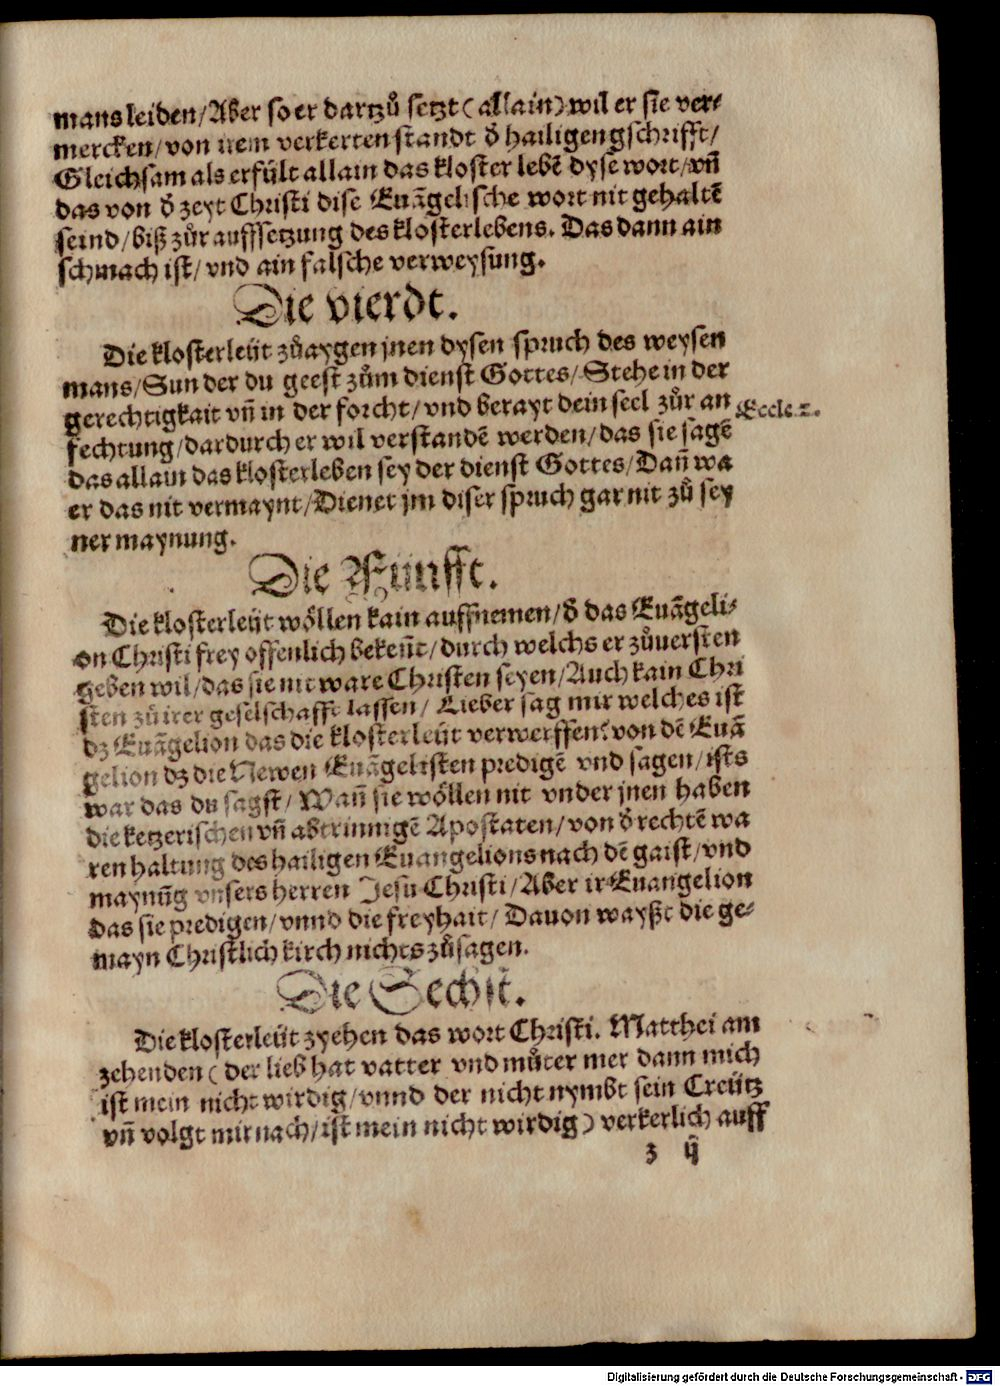 mans leiden/Aber so er dartzů setzt (allain) wil er sie ver⸗
mercken/von irem verkerten standt d̾ hailigen gschrifft/
Gleichsam als erfült allain das kloster lebē dyse wort/vn̄
das von d̾ zeyt Christi dise Euāgelische wort nit gehaltē
seind/biß zůr auffsetzung des klosterlebens. Das dann ain
schmach ist/vnd ain falsche verweysung.
Die vierdt.
Die klosterleüt zůaygen jnen dysen spruch des weysen
mans/Sun der du geest zům dienst Gottes/Stehe in der
gerechtigkait vn̄ in der forcht/vnd berayt dein seel zůr an
fechtung/dardurch er wil verstandē werden/das sie sagē
das allain das klosterleben sey der dienst Gottes/Dan̄ wa
er das nit vermaynt/Dienet jm diser spruch gar nit zů sey
ner maynung.
Eccle.2.
Die Fünfft.
Die klosterleüt wöllen kain auffnemen/d̾ das Euāgeli⸗
on Christi frey offenlich beken̄t/durch welchs er zůuersten
geben wil/das sie nit ware Christen seyen/Auch kain Chri
sten zů irer geselschafft lassen/ Lieber sag mir welches ist
dz Euāgelion das die klosterleüt verwerffen? von dē Euā
gelion dz die Newen Euāgelisten predigē vnd sagen/ists
war das du sagst/Wan̄ sie wöllen nit vnder jnen haben
die ketzerischen vn̄ abtrinnigē Apostaten/von d̾ rechtē wa
ren haltung des hailigen Euangelions nach dē gaist/vnd
maynūg vnsers herren Jesu Christi/Aber ir Euangelion
das sie predigen/vnnd die freyhait/ Dauon wayßt die ge⸗
mayn Christlich kirch nichts zůsagen.
Die Sechst.
Die klosterleüt zyehen das wort Christi. Matthei am
zehenden (der lieb hat vatter vnd můter mer dann mich
ist mein nicht wirdig/vnnd der nicht nymbt sein Creütz
vn̄ volgt mir nach/ist mein nicht wirdig) verkerlich auff
z ij
Digitalisierung gefördert durch die Deutsche Forschungsgemeinschaft - DFG